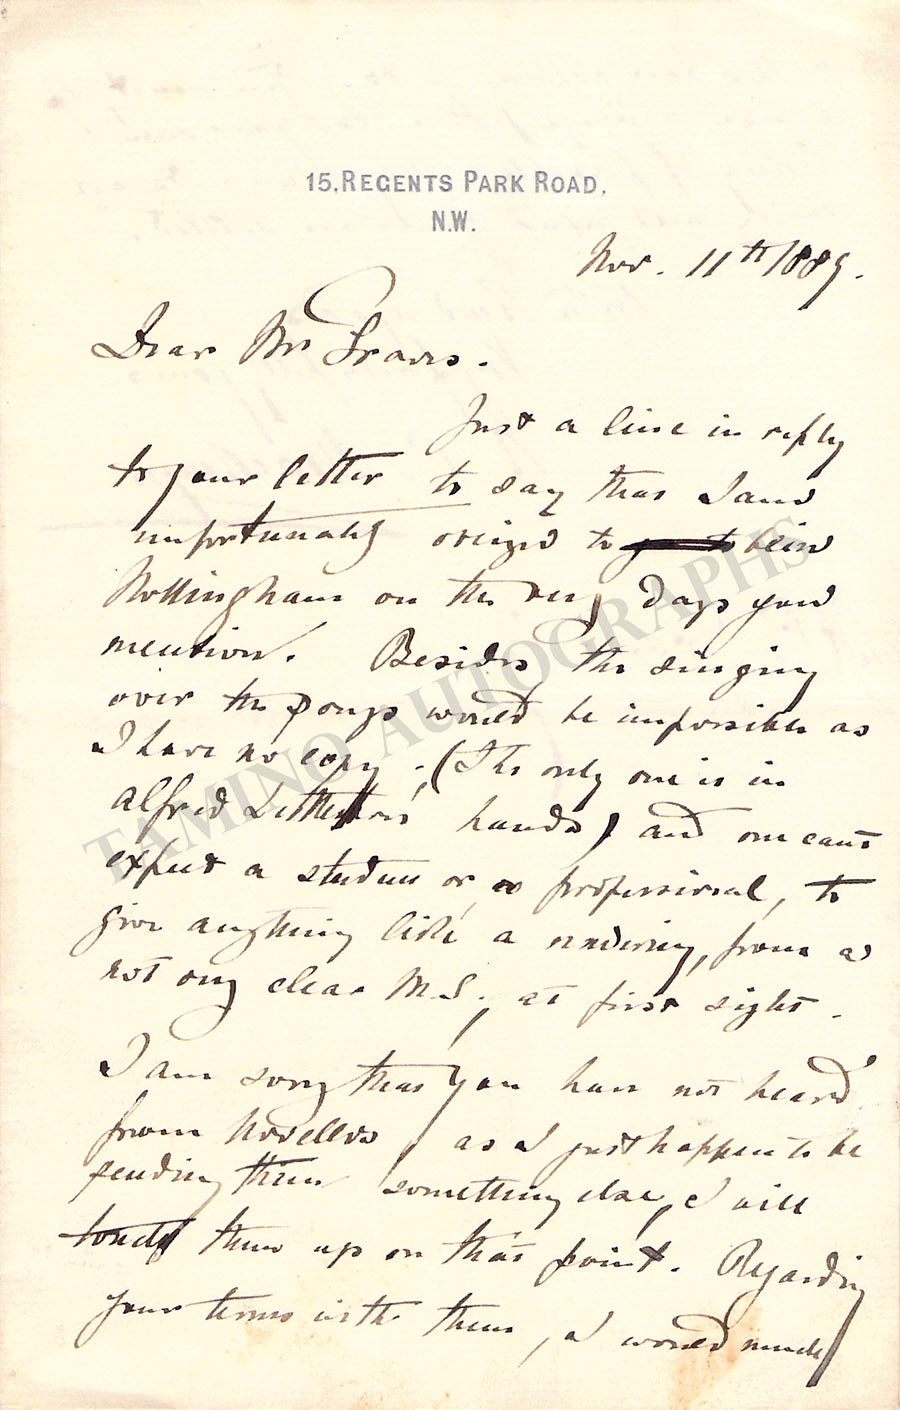 15, REGENTS PARK ROAD,
N.W.
Nov. 11th 1889.
Dear Mr Graves.
Just a line in reply
to your letter to say that I am
unfortunately obliged to be in
Nottingham on the very days you
mention. Besides the singing
over the songs would be impossible as
I have no copy; (The only one is in
Alfred Littleton's hands) and one can't
expect a student or a professional, to
give anything like a rendering, from a
not very clear M.S., at first sight.
I am sorry that you have not heard
from Novellos, as I just happen to be
sending them something else, I will
touch them up on that point. Regarding
your terms with them, I would much
TAMINO AUTOGRAPHS